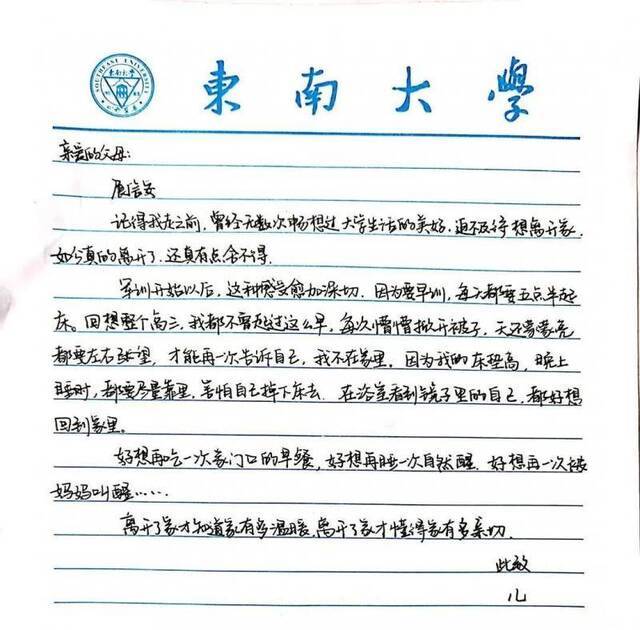 東南大學
SOUTHEAST UNIVERSITY
東南大學
亲爱的父母:
展信安
记得我走之前,曾经无数次畅想过大学生活的美好,迫不及待想离开家,
如今真的离开了,还真有点舍不得.
军训开始以后,这种感觉愈加深切.因为要早训,每天都要五点半起
床。回想整个高三,我都不曾起过这么早,每次懵懵掀开被子,天还蒙蒙亮
都要左右张望,才能再一次告诉自己,我不在家里。因为我的床很高,晚上
睡时,都要尽量靠里,害怕自己掉下床去.在浴室看到镜子里的自己,都好想
回到家里。
好想再吃一次家门口的早餐,好想再睡一次自然醒.好想再一次被
妈妈叫醒……
离开了家才知道家有多温暖,离开了家才懂得家有多亲切.
此致
儿